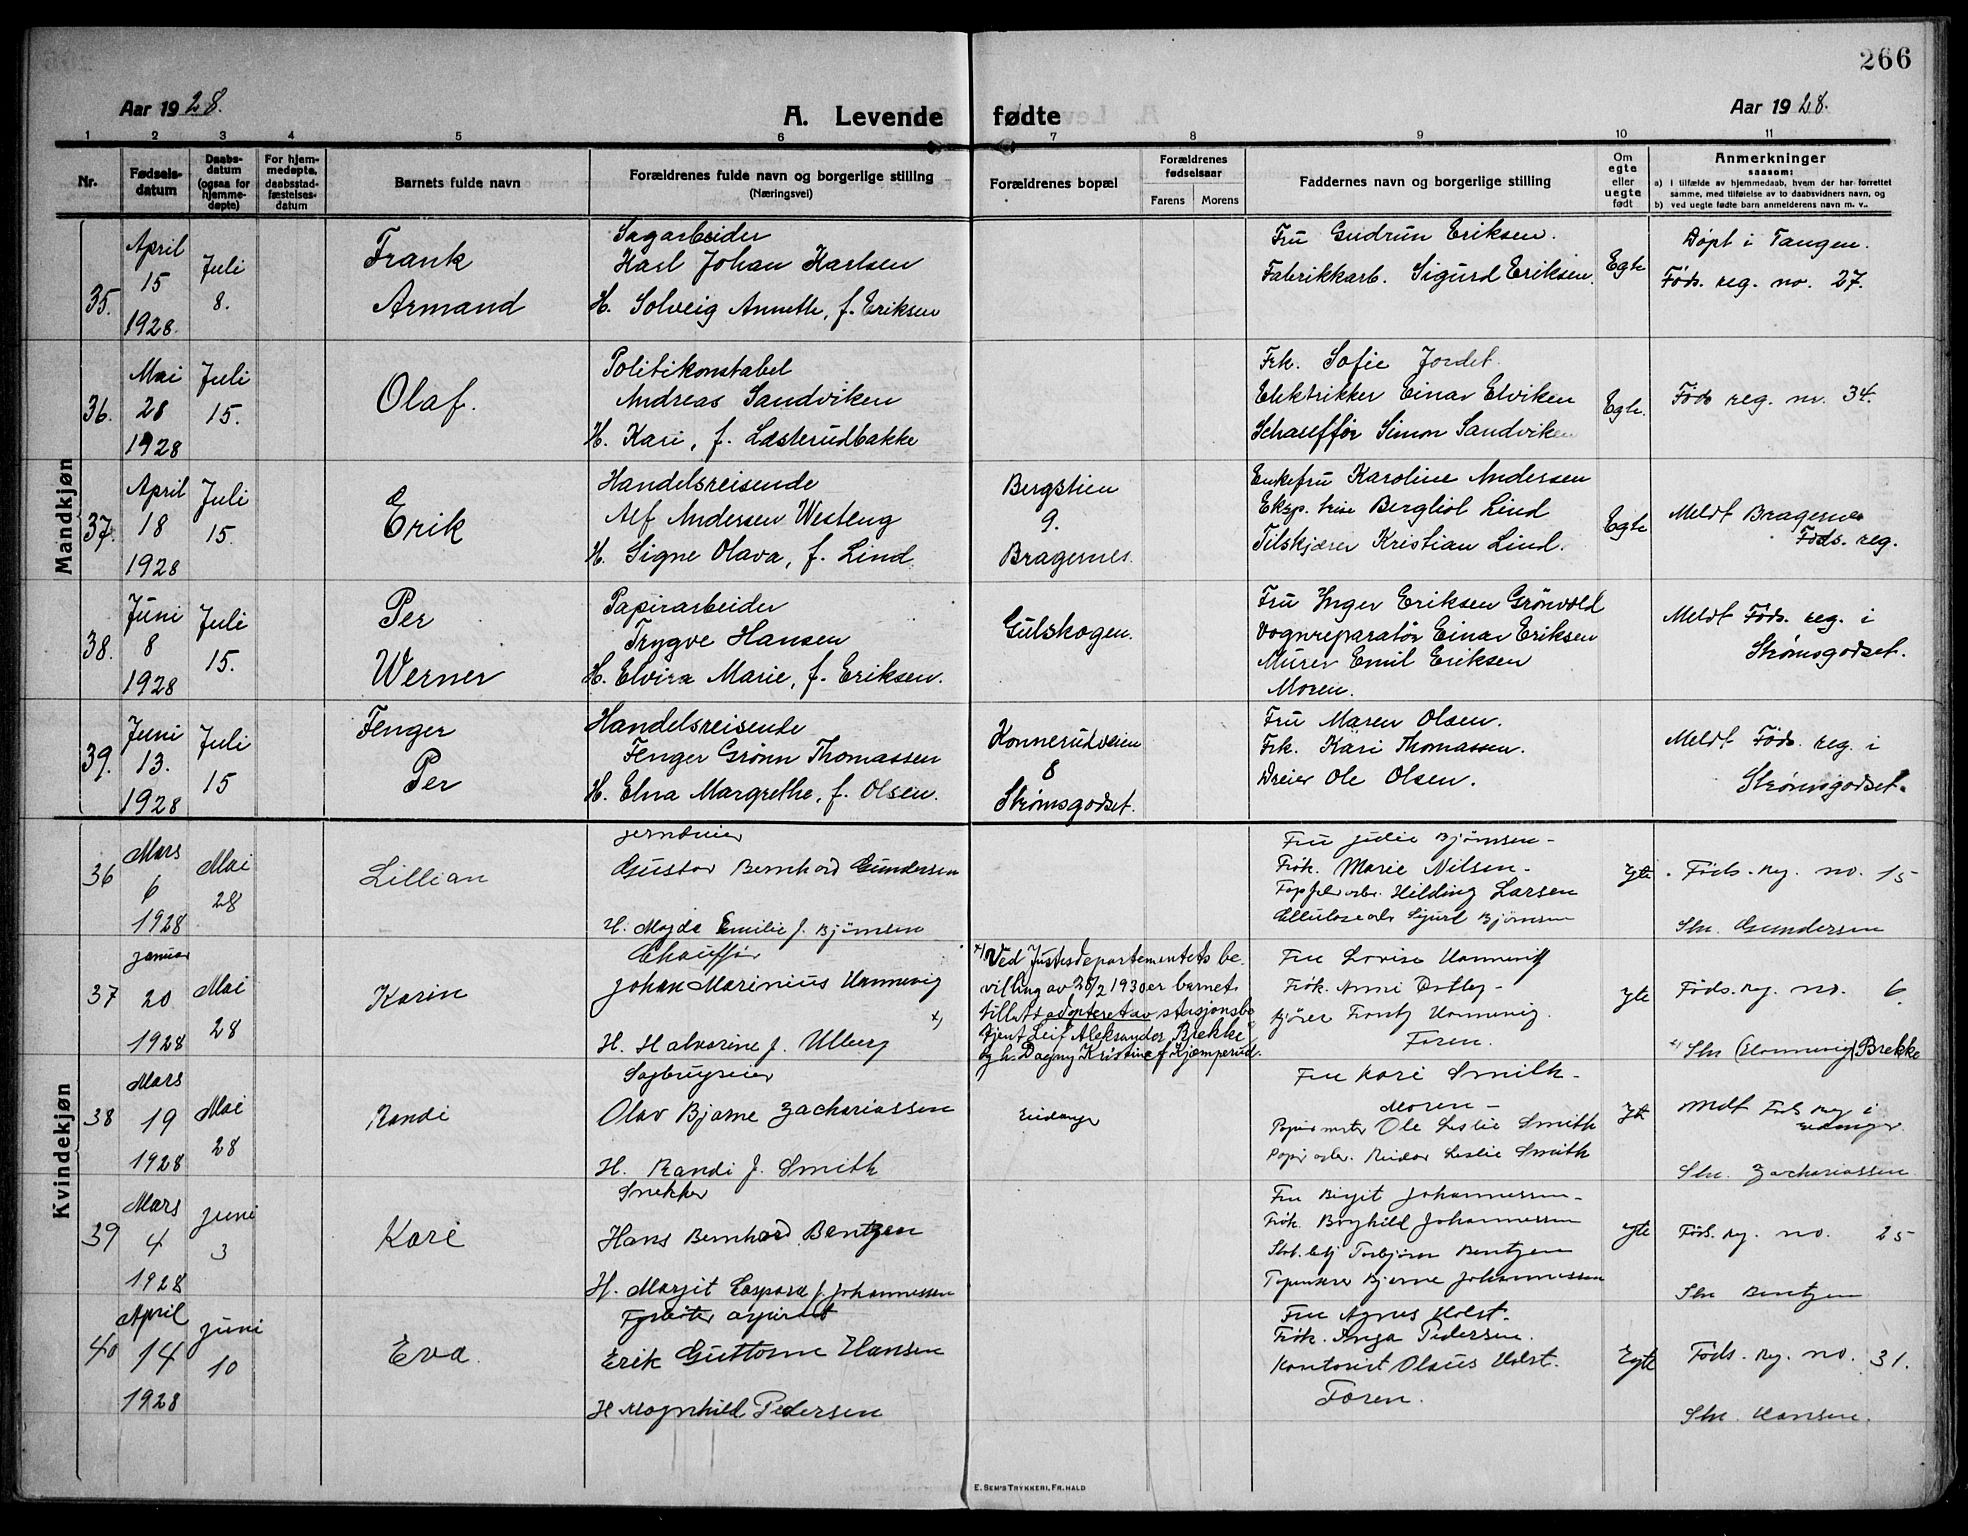 266
Aar 1928.
A. Levende fødte
Aar 1928.
1 2 3 4 5 6 7 8 9 10 11
Nr.
Fødsels-
datum
Daabs-
datum
(ogsaa for
hjemme-
døpte)
For hjem-
medøpte,
daabsstad-
fæstelses-
datum
Barnets fulde navn
Forældrenes fulde navn og borgerlige stilling
(Næringsvei)
Forældrenes bopæl
Forældrenes
fødselsaar
Farens Morens
Faddernes navn og borgerlige stilling
Om
egte
eller
uegte
født
Anmerkninger
saasom:
a) i tilfælde av hjemmedaab, hvem der har forrettet
samme, med tilføielse av to daabsvidners navn, og
b) ved uegte fødte barn anmelderens navn m. v.
Mandkjøn
35.
April
15
1928.
Juli
8.
Frank
Armand
Sagarbeider
Karl Johan Karlsen
H. Solveig Annethe, f. Eriksen
Fru Gudrun Eriksen.
Fabrikkarb. Sigurd Eriksen.
Egte
Døpt i Tangen.
Føds. reg. no. 27.
36.
Mai
28
1928
Juli
15.
Olaf.
Politikonstabel
Andreas Sandviken
H. Kari, f. Læsterudbakke
Frk. Sofie Jordet
Elektrikker Einar Elviken
Schaufför Simon Sandviken
Egte.
Føds reg. nr. 34.
37.
April
18
1928
Juli
15.
Erik
Handelsreisende
Alf Andersen Westeng
H. Signe Olava, f. Lind
Bergstien
9.
Bragernes.
Enkefru Karoline Andersen
Eksp. trise Bergliot Lind
Tilskjærer Kristian Lind.
Egte
Meldt Bragernes
Føds. reg.
38.
Juni
8
1928
Juli
15.
Per
Werner
Papirarbeider
Trygve Hansen
H. Elvira Marie, f. Eriksen.
Gulskogen.
Fru Inger Eriksen Grönvold
Vognreparatör Einar Eriksen
Murer Emil Eriksen
Moren.
Meldt Föds. reg. i
Strömsgodset.
39.
Juni
13.
1928
Juli
15
Fenger
Per
Handelsreisende
Fenger Grönn Thomassen
H. Elna Margrethe, f. Olsen.
Konnerudveien
8
Strömsgodset.
Fru Maren Olsen.
Frk. Kari Thomassen.
Dreier Ole Olsen.
Meldt Föds. reg. i
Strömsgodset.
Kvindekjøn
36
Mars
6
1928
Mai
28
Lillian
Jerndreier
Gustav Bernhard Gundersen
H. Magda Emilie f. Bjørnsen
Fru Julie Bjørnsen -
Frøk. Marie Nilsen -
Hilding Larsen
Cellulosearb Sigurd Bjørnsen
egte
Føds. reg. no. 15
Sln. Gundersen
37
Januar
20
1928
Mai
28
Karin
Chauffør
Johan Marinius Hannevig
x)
H. Halvorine f. Ulberg
x) Ved Justisdepartementets be-
villing av 26/2 1930 er barnet
tillatt adopteret av stasjonsbe-
tjent Leif Aleksander Brekke
og h. Dagny Kristine f. Kjæmperud.
Fru Lovise Hannevig
Frøk. Anni Østby -
Kjører Frantz Hannevig.
Faren.
egte
Føds. reg. no. 6
x) Sln (Hannevig) Brekke
38
Mars
19
1928
Mai
28
Randi
Sagbrugseier
Olav Bjarne Zachariassen
H. Randi f. Smith
Eidanger
Fru Kari Smith -
Moren -
Papirmester Ole Leslie Smith
Papirarb. Reidar Leslie Smith
egte
Meldt Føds reg i
Eidanger
Sln. Zachariassen
39
Mars
4
1928
Juni
3
Kari
Snekker
Hans Bernhard Bentzen
H. Margit Caspara f. Johannessen
Fru Birgit Johannessen -
Frøk. Borghild Johannessen
Torbjørn Bentzen
Bjarne Johannessen
egte
Føds. reg. no. 25
Sln Bentzen
40
April
14
1928
Juni
10
Eva.
Fyrbøter aspirant
Erik Guttorm Hansen
H Magnhild Pedersen
Fru Agnes Holst.
Frøk. Anga Pedersen.
Kontorist Olaus Holst.
Faren.
Egte
Føds. reg. no. 31.
Sln. Hansen.
E. SEM'S TRYKKERI, FR. HALD